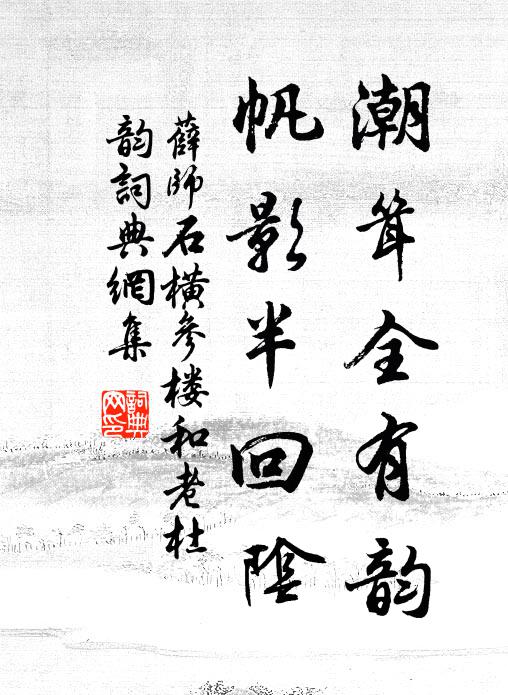 潮聲全有韵
帆影半回陰
薛師石橫參楼和老杜
韵詞典網集
詞典網印